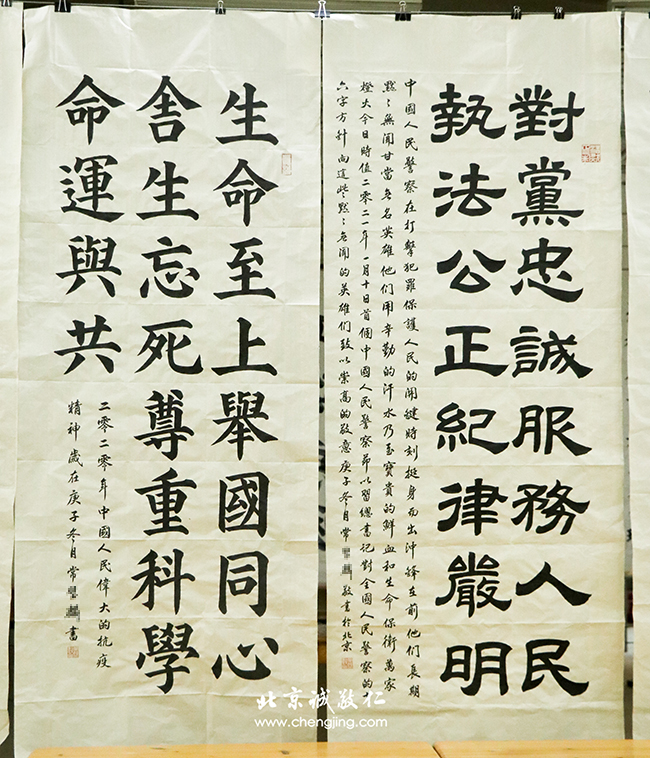 對黨忠誠服務人民
執法公正紀律嚴明
中國人民警察在打擊犯罪保護人民的関鍵時刻挺身而出沖鋒在前他們長期
默〻無聞甘當無名英雄他們用辛勤的汗水乃至寶貴的鮮血和生命保衛萬家
燈火今日時值二零二一年一月十日首個中國人民警察節以習總書記對全國人民警察的十
六字方針向這些默〻無聞的英雄們致以崇高的敬意庚子冬月常 敬書於北京
生命至上舉國同心
舍生忘死尊重科學
命運與共
二零二零年中國人民偉大的抗疫
精神歲在庚子冬月常 書
北京誠敬仁
www.chengjing.com